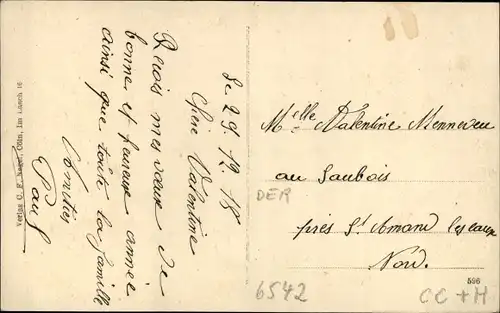 Le 29.12.18
Chère Valentine
Reçois mes vœux de
bonne et heureuse année
ainsi que toute la famille
Amitiés
Paul
Melle Valentine
au Saubois
près St Amand les eaux
Nord.
DER
6542
CC + H
596
Verlag C. F. Cöln, Im